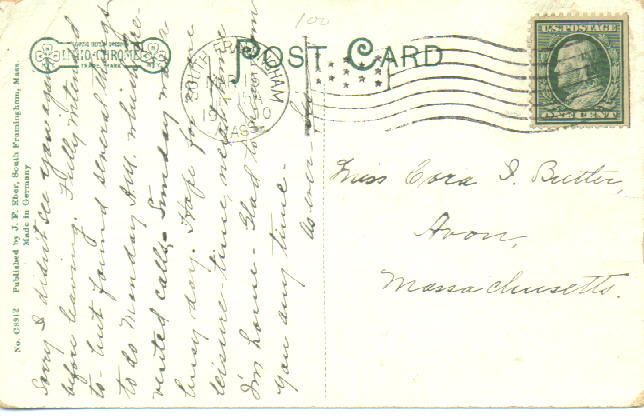 POST CARD
LITHO-CHROME
TRADE MARK
100
SOUTH FRAMINGHAM
MASS.
U.S. POSTAGE
ONE CENT
Miss Cora I. Butler,
Avon,
Massachusetts.
No. C8912 Published by J. F. Eber, South Framingham, Mass.
Made in Germany
Sorry I didn't see you again
before leaving. Fully intended
to - but found several things
to do Monday A.M. which pre-
vented calls. Sunday was a
busy day. Hope for more
leisure time, next time
I'm home - Glad to
you any time -
As ever -